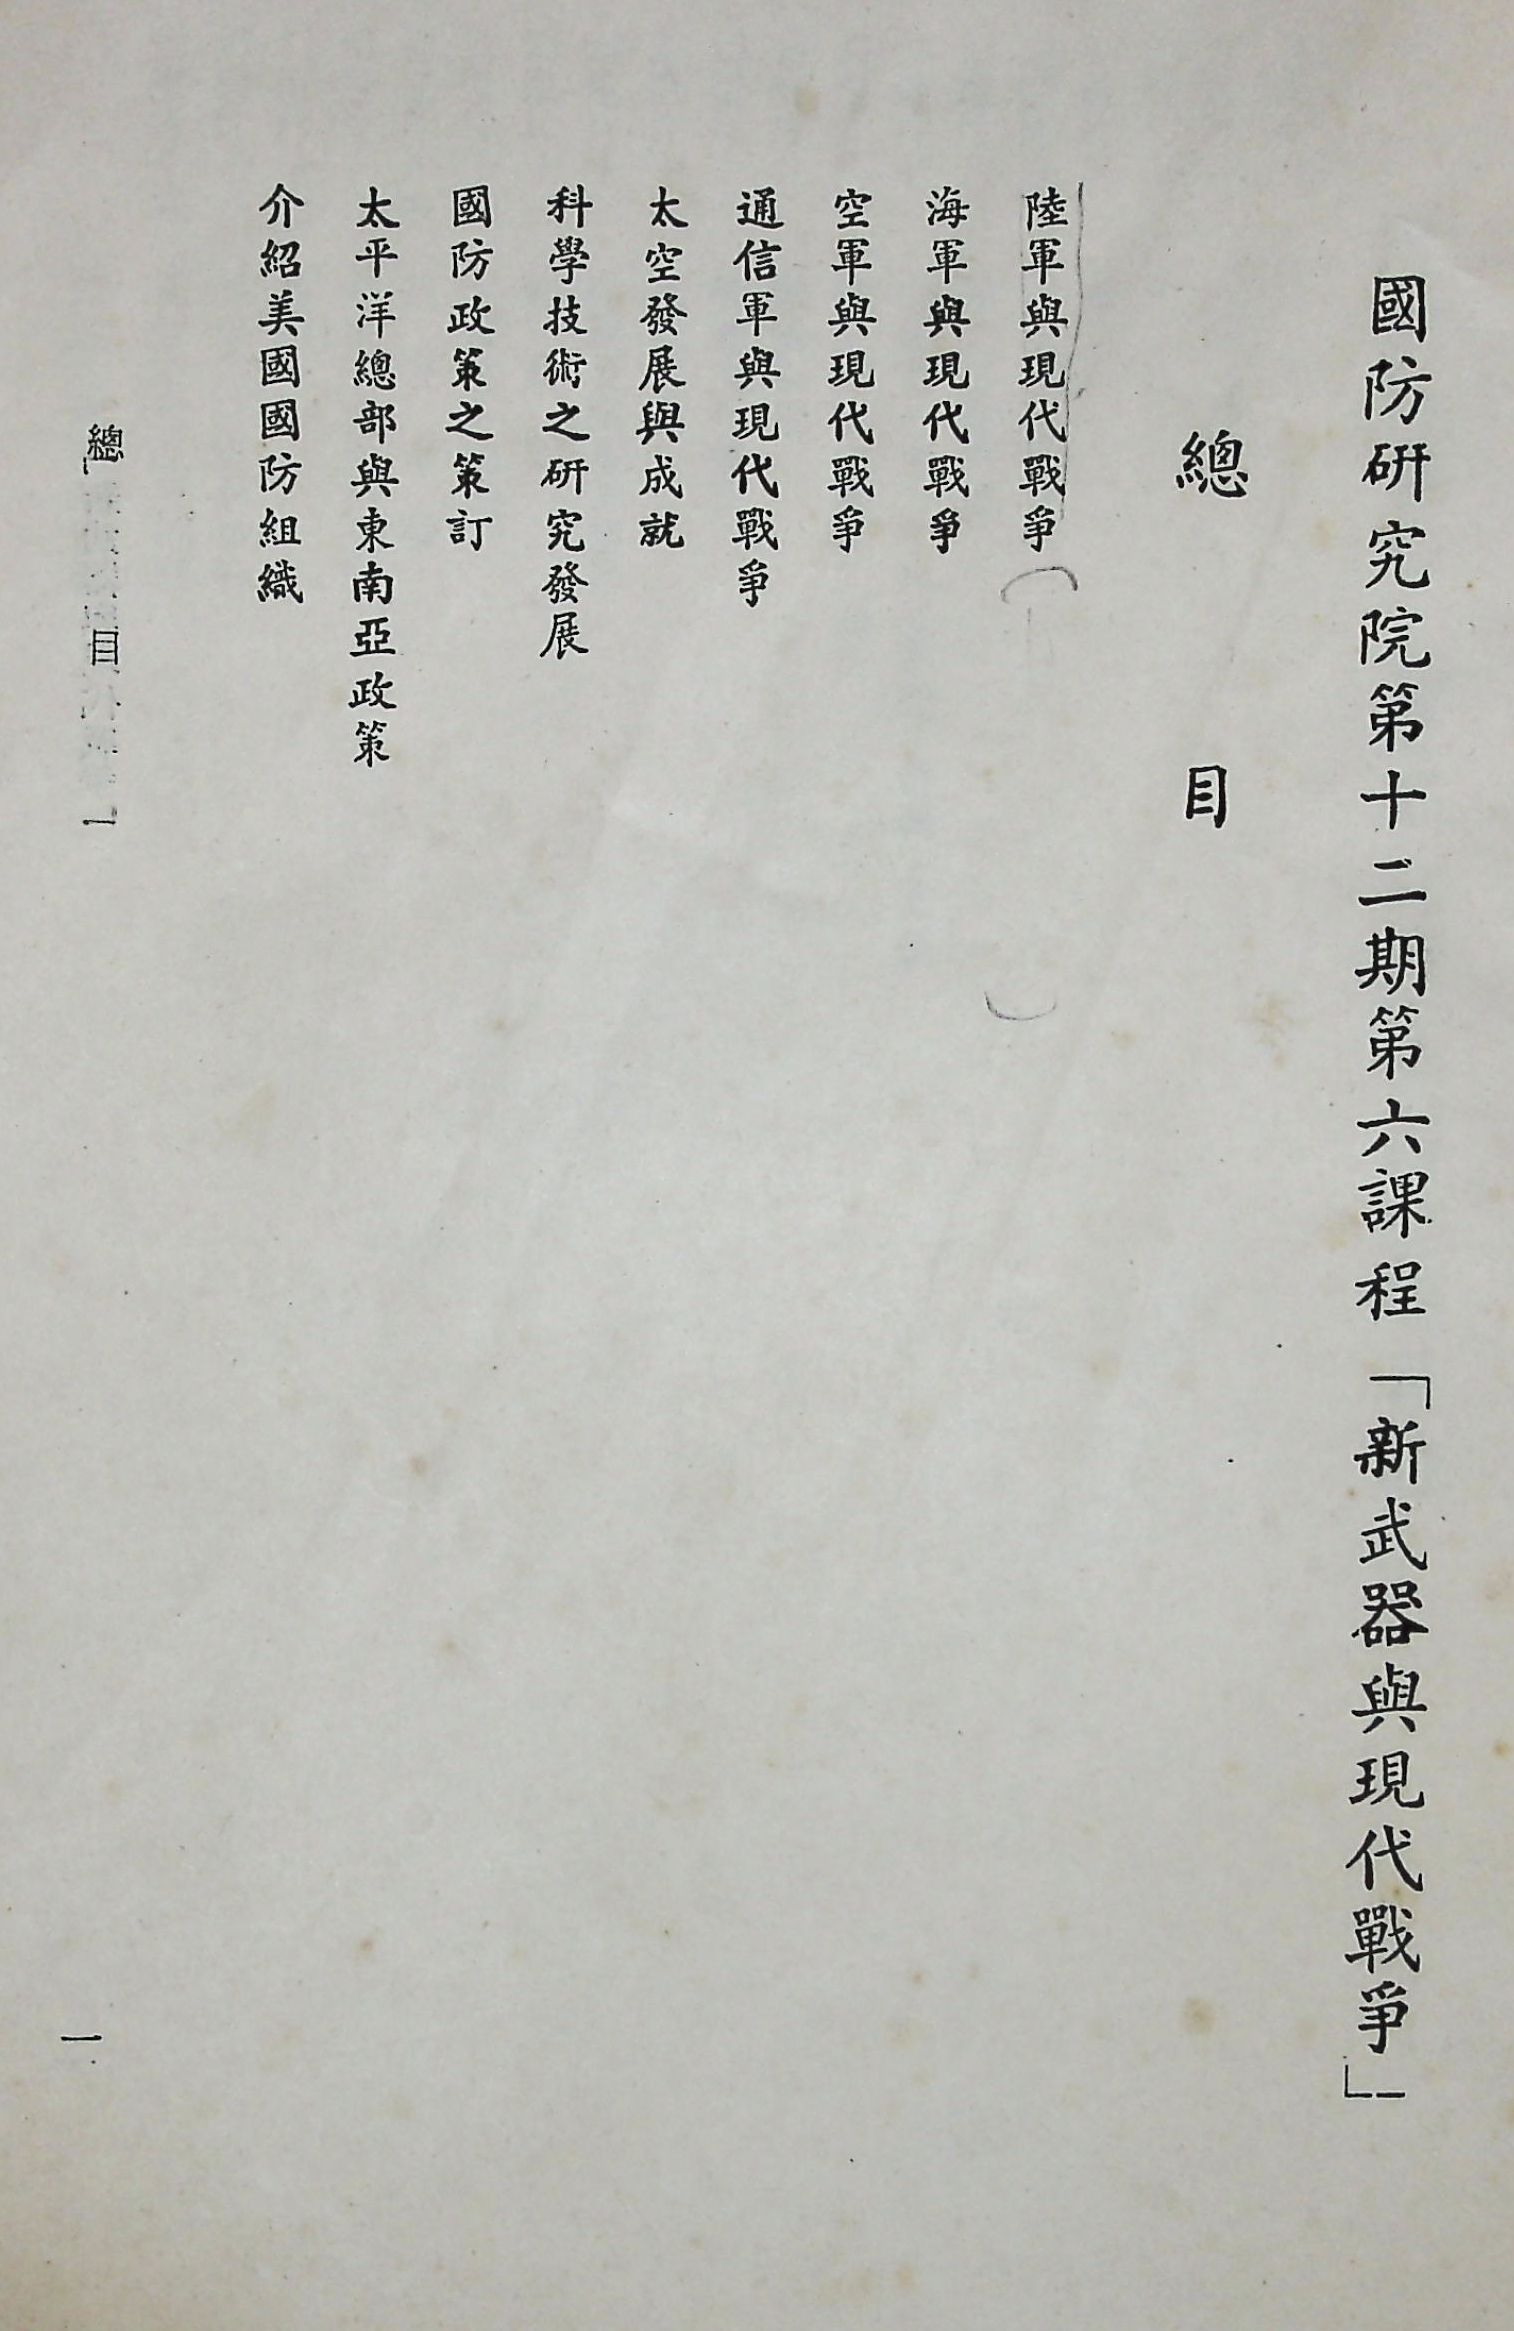 國防研究院第十二期第六課程「新武器與現代戰爭」
總目
陸軍與現代戰爭
海軍與現代戰爭
空軍與現代戰爭
通信軍與現代戰爭
太空發展與成就
科學技術之研究發展
國防政策之策訂
太平洋總部與東南亞政策
介紹美國國防組織
總目
一